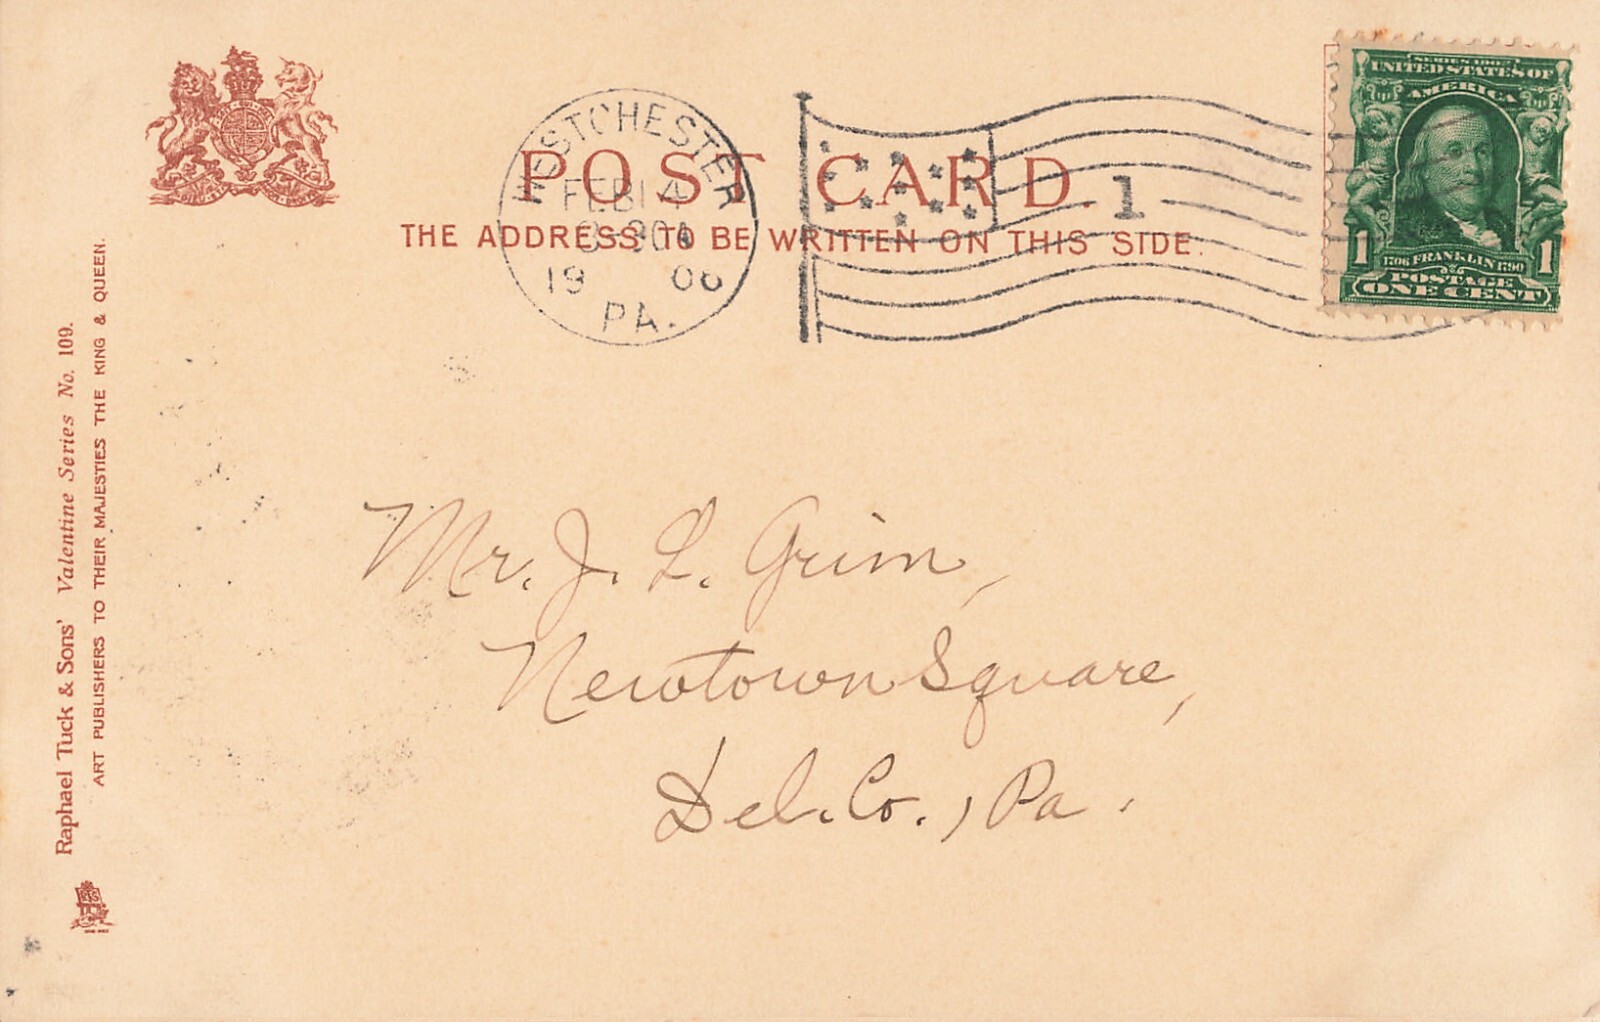 POST CARD.
THE ADDRESS TO BE WRITTEN ON THIS SIDE.
WESTCHESTER
FEB 14
19 06
PA.
1
SERIES 1902
UNITED STATES OF
AMERICA
1706 FRANKLIN 1790
1 1
POSTAGE
ONE CENT
Mr. J. L. Grim,
Newtown Square,
Del. Co., Pa.
Raphael Tuck & Sons' Valentine Series No. 109.
ART PUBLISHERS TO THEIR MAJESTIES THE KING & QUEEN.